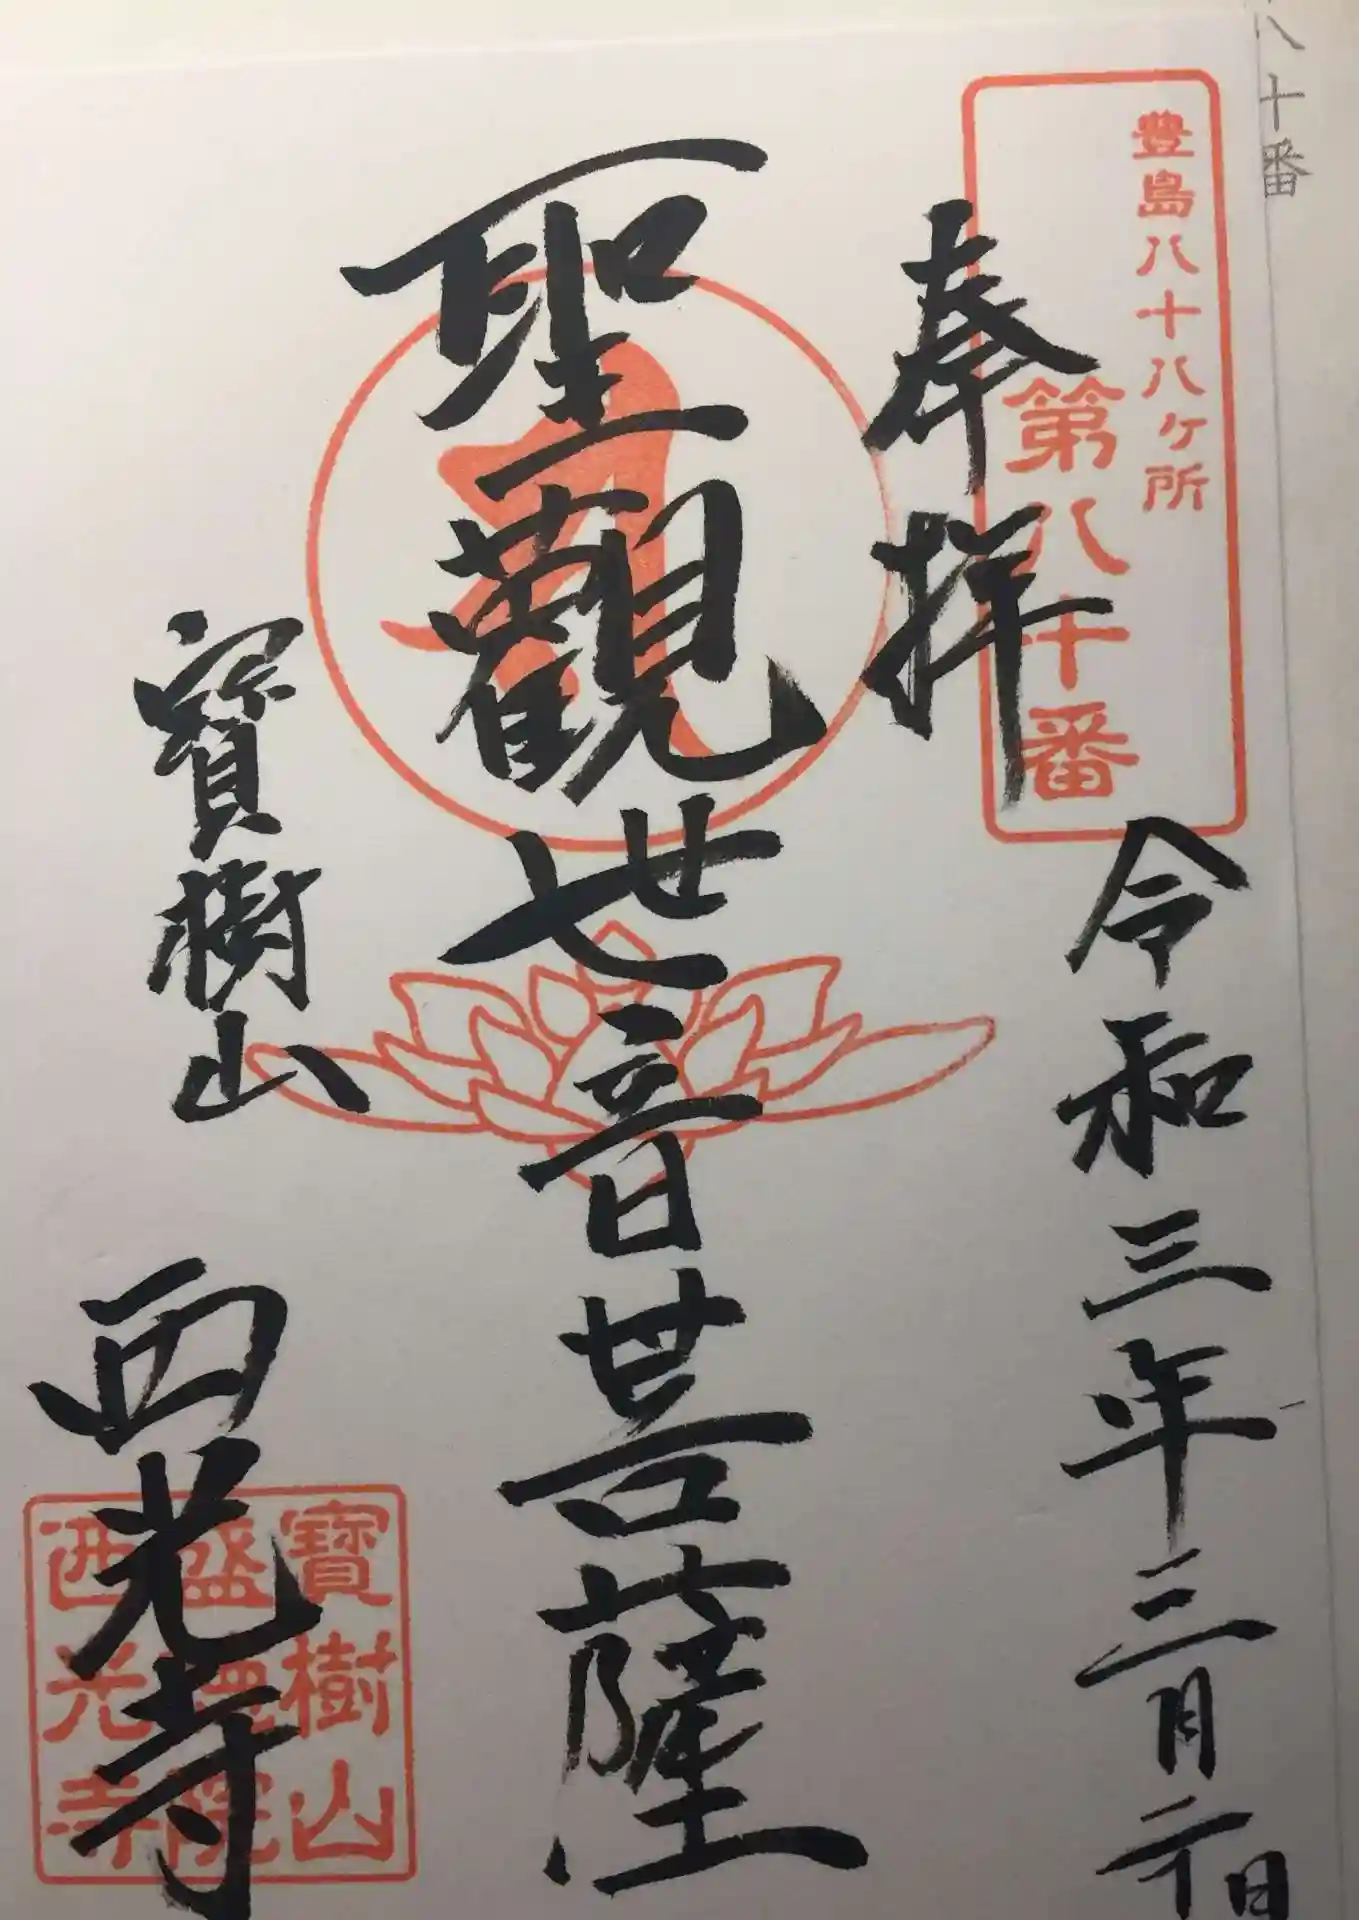 八十番
豊島八十八ヶ所
第八十番
奉拝
令和三年三月二十日
聖觀世音菩薩
寶樹山
西光寺
寶樹山
盛院
西光寺